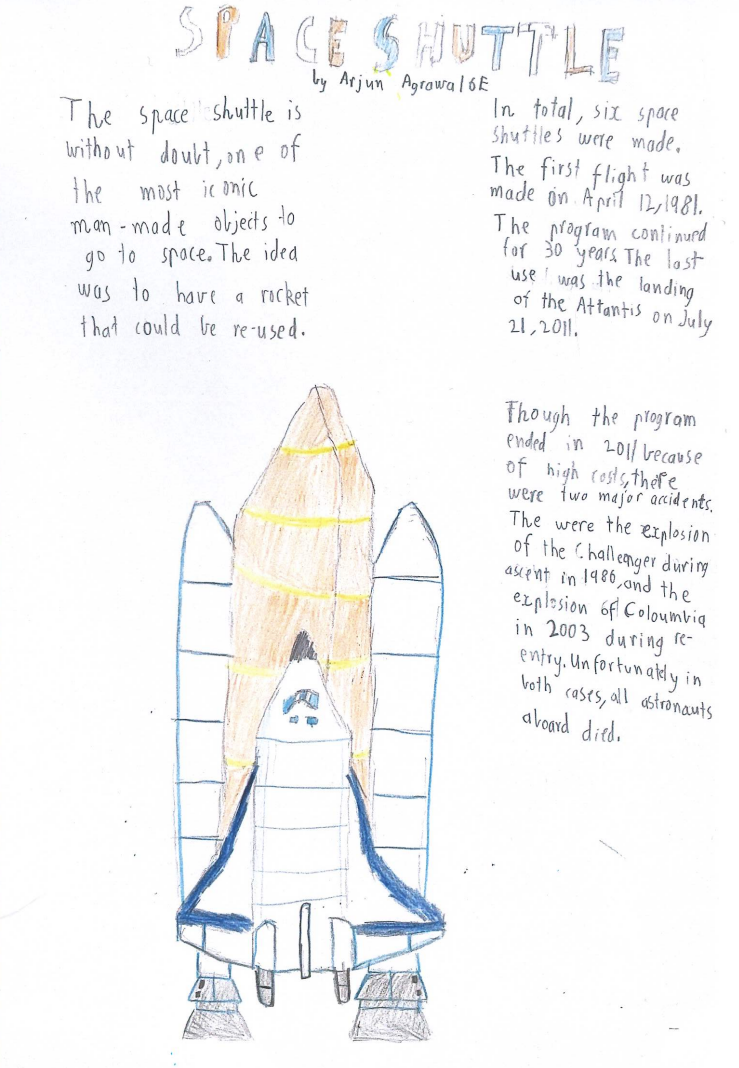 SPACE SHUTTLE
by Arjun Agrawal 6E
The space shuttle is
without doubt, one of
the most iconic
man-made objects to
go to space. The idea
was to have a rocket
that could be re-used.
In total, six space
shuttles were made.
The first flight was
made on April 12, 1981.
The program continued
for 30 years. The last
use was the landing
of the Attantis on July
21, 2011.
Though the program
ended in 2011 because
of high costs, there
were two major accidents.
The were the explosion
of the Challenger during
ascent in 1986, and the
explosion of Coloumvia
in 2003 during re-
entry. Unfortunately in
both cases, all astronauts
aboard died.